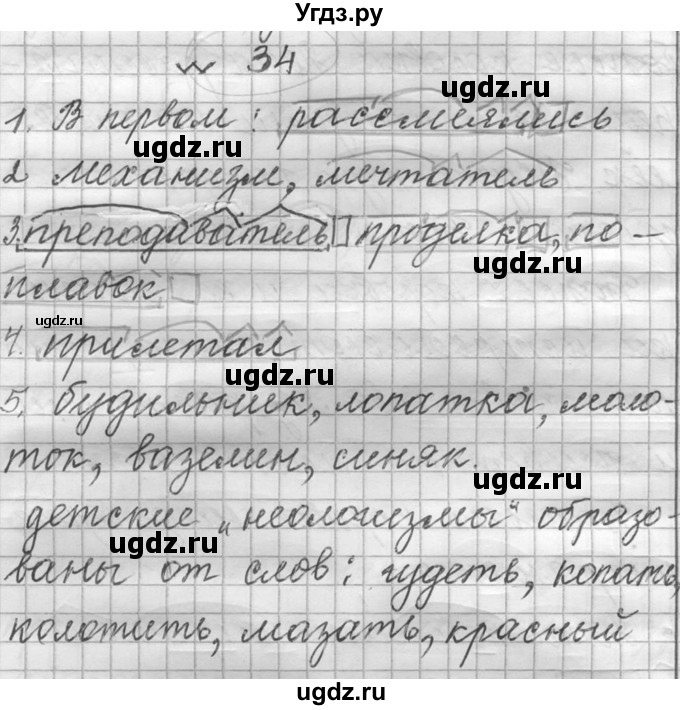 Угдз.ру
№ 34
ugdz.ru
1. В первом: рассмеялись
ugdz.ru
2 механизм, мечтатель
ugdz.ru
3. преподаватель проделка, по-
ugdz.ru
плавок
ugdz.ru
4. прилетал
ugdz.ru
5. будильник, лопатка, моло-
ток, вазелин, синяк.
ugdz.ru
детские „неологизмы“ образо-
ugdz.ru
ваны от слов: гудеть, копать,
колотить, мазать, красный
ugdz.ru